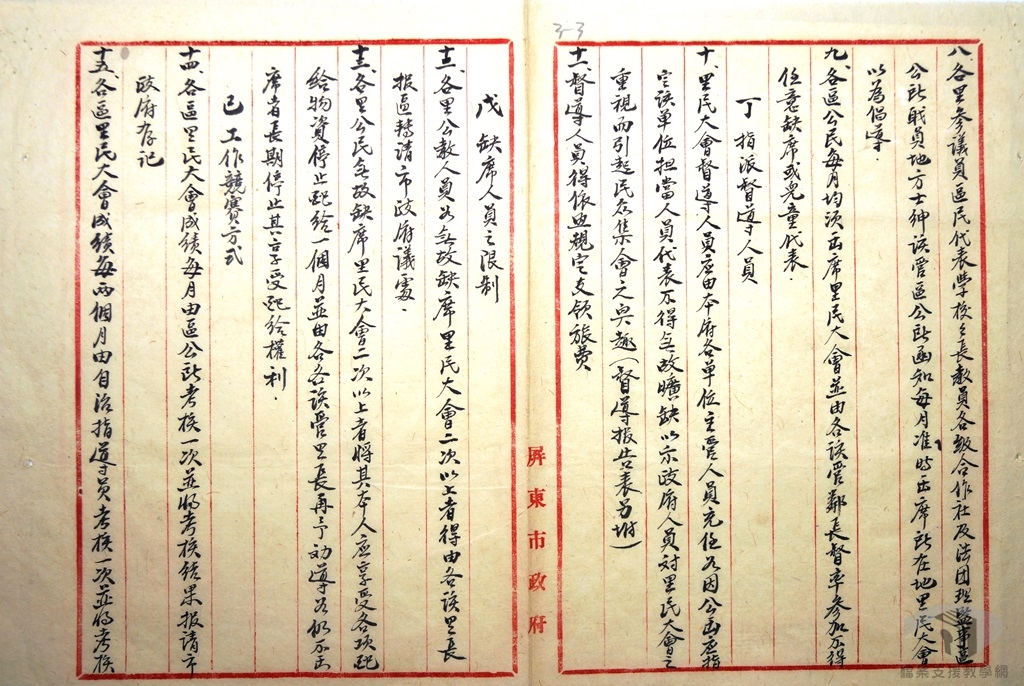 3-3
八、各里參議員區民代表學校校長教員各級合作社及法团理監事區
公所職員地方士紳該管區公所函知每月准時出席所在地里民大會
以為倡導．
九、各區公民每月均須出席里民大會並由各該管鄰長督率參加不得
任意缺席或兒童代表．
丁 指派督導人員
十、里民大會督導人員应由本府各單位主管人員充任如因公函应指
定該單位担當人員代表不得無故曠缺以示政府人員対里民大會之
重視而引起民眾集會之兴趣（督導报告表另附）
十一、督導人員得依照規定支領旅费
屏東市政府
戊 缺席人員之限制
十二、各里公教人員如無故缺席里民大會二次以上者得由各該里長
报區轉請市政府議處．
十三、各里公民無故缺席里民大會二次以上者將其本人应享受各项配
给物資停止配给一個月並由各該管里長再予劝導如仍不出
席者長期停止其享受配给權利．
己 工作競賽方式
十四、各區里民大會成績每月由區公所考核一次並將考核结果报請市
政府存記
十五、各區里民大會成績每两個月由自治指導員考核一次並將考核
檔案支援教學網